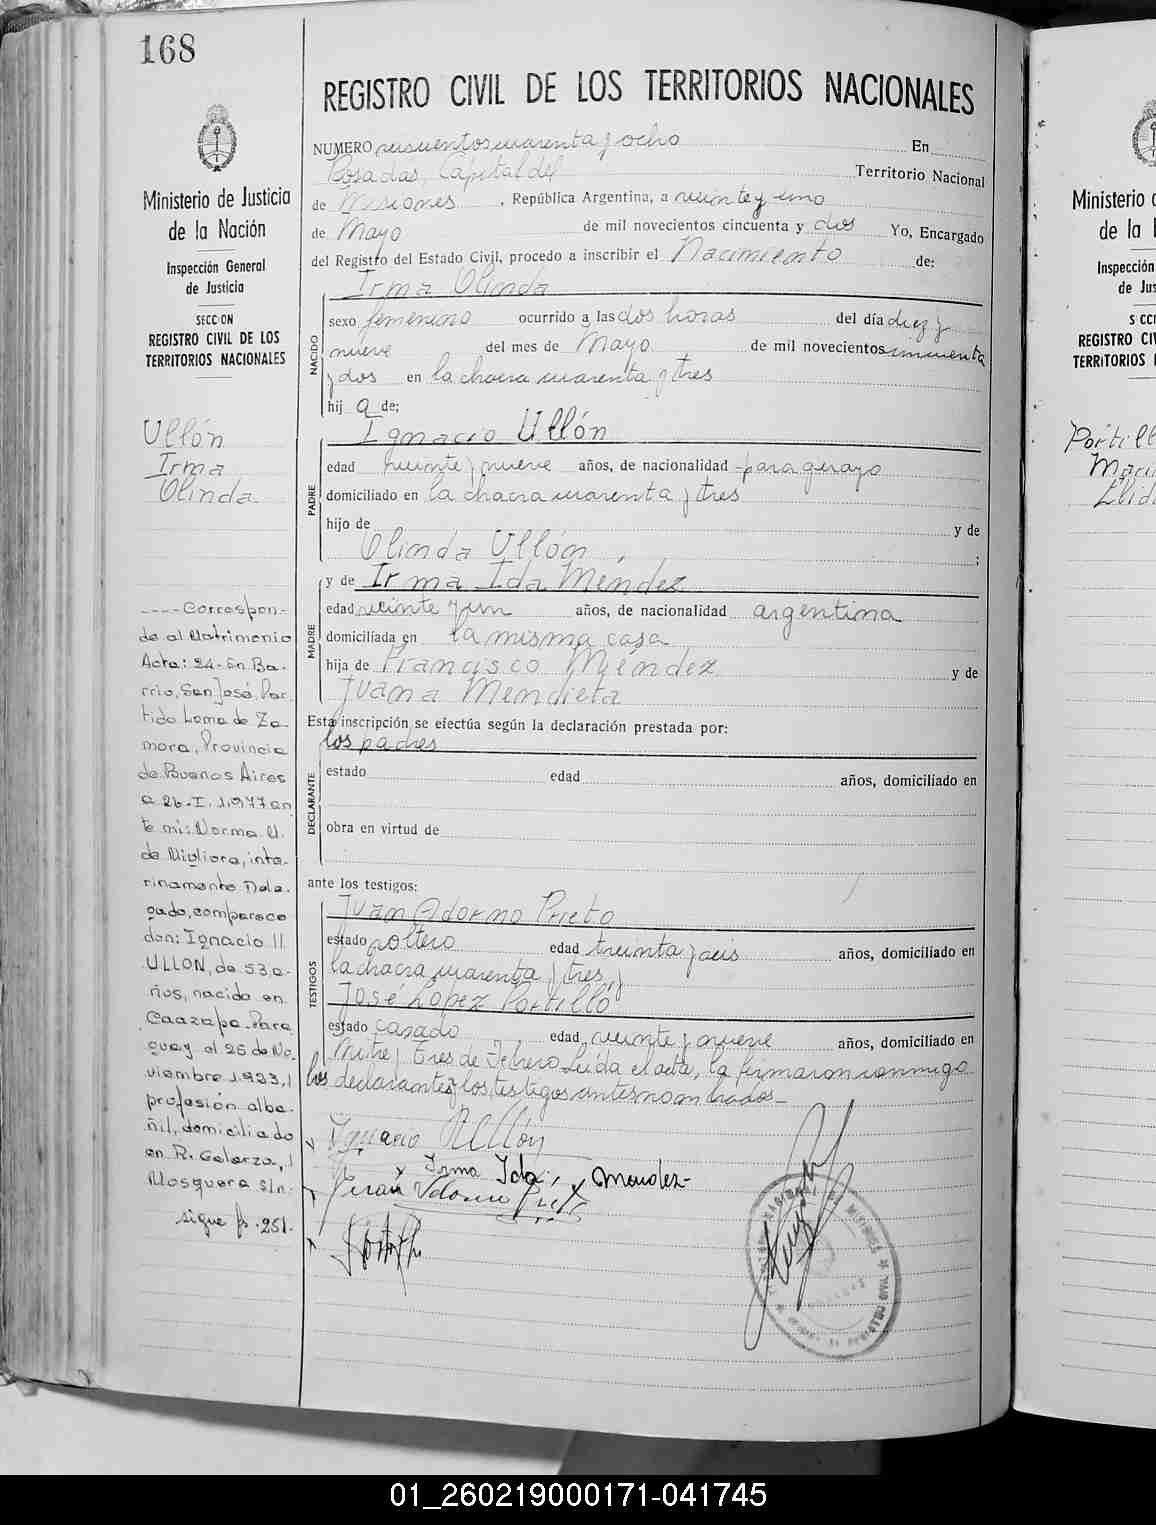 168
REGISTRO CIVIL DE LOS TERRITORIOS NACIONALES
Ministerio de Justicia
de la Nación
Inspección General
de Justicia
SECCION
REGISTRO CIVIL DE LOS
TERRITORIOS NACIONALES
Ullón
Irma
Olinda
NUMERO seiscientos cuarenta y ocho En
Posadas, Capital del Territorio Nacional
de Misiones, República Argentina, a veinte y uno
de Mayo de mil novecientos cincuenta y dos Yo, Encargado
del Registro del Estado Civil, procedo a inscribir el Nacimiento de:
Irma Olinda
NACIDO
sexo femenino ocurrido a las dos horas del día diez y
nueve del mes de Mayo de mil novecientos cincuenta
y dos en la chacra cuarenta y tres
hij a de;
Ignacio Ullón
PADRE
edad veinte y nueve años, de nacionalidad paraguayo
domiciliado en la chacra cuarenta y tres
hijo de y de
Olinda Ullón ;
y de Irma Ida Méndez
MADRE
edad veinte y un años, de nacionalidad argentina
domiciliada en la misma casa
hija de Francisco Méndez y de
Juana Mendieta
Esta inscripción se efectúa según la declaración prestada por:
los padres
DECLARANTE
estado edad años, domiciliado en
obra en virtud de
ante los testigos:
Juan Adorno Prieto
TESTIGOS
estado soltero edad treinta y seis años, domiciliado en
la chacra cuarenta y tres, y
José López Portillo
estado casado edad veinte y nueve años, domiciliado en
Mitre y Tres de Febrero. Leída el acta, la firmaron conmigo
los declarantes y los testigos antes nombrados.-
Ignacio Ullón
Irma Ida, Mendez-
Juan Adorno Prieto
----Correspon-
de al Matrimonio
Acta: 24- En Ba-
rrio, San José, Par-
tido Loma de Za-
mora, Provincia
de Buenos Aires
a 26-I-1.977 an
te mi: Norma U.
de Migliora, inte-
rinamente Dele-
gado, comparece
don: Ignacio
ULLON, de 53 a-
ños, nacido en
Caazapa-Para
guay el 25 de No-
viembre 1.923,
profesión alba-
ñil, domiciliado
en R. Galarza,
Mosquera s/n-
sigue fs. 251.
Ministerio
de la
Inspección
de Jus
REGISTRO CIV
TERRITORIOS
Portill
01_260219000171-041745